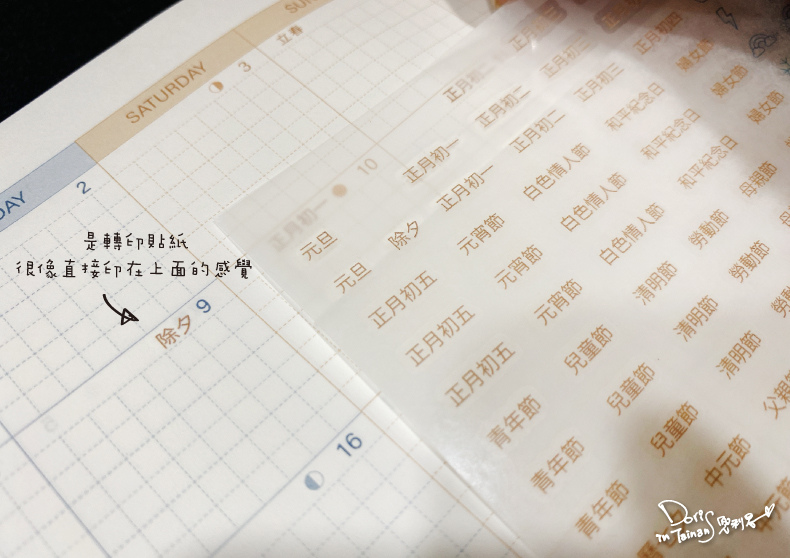 SUN
SATURDAY
DAY
立春
3
2
10
正月初一
9
除夕
16
是轉印貼紙
很像直接印在上面的感覺
正月初一
正月初一
正月初二
正月初二
正月初三
正月初四
元旦
元旦
除夕
元宵節
元宵節
元宵節
白色情人節
白色情人節
白色情人節
和平紀念日
和平紀念日
和平紀念日
婦女節
婦女節
婦女節
正月初五
正月初五
正月初五
兒童節
兒童節
兒童節
清明節
清明節
清明節
勞動節
勞動節
母親節
母親節
青年節
青年節
青年節
中元節
父親
Doris
in Tainan